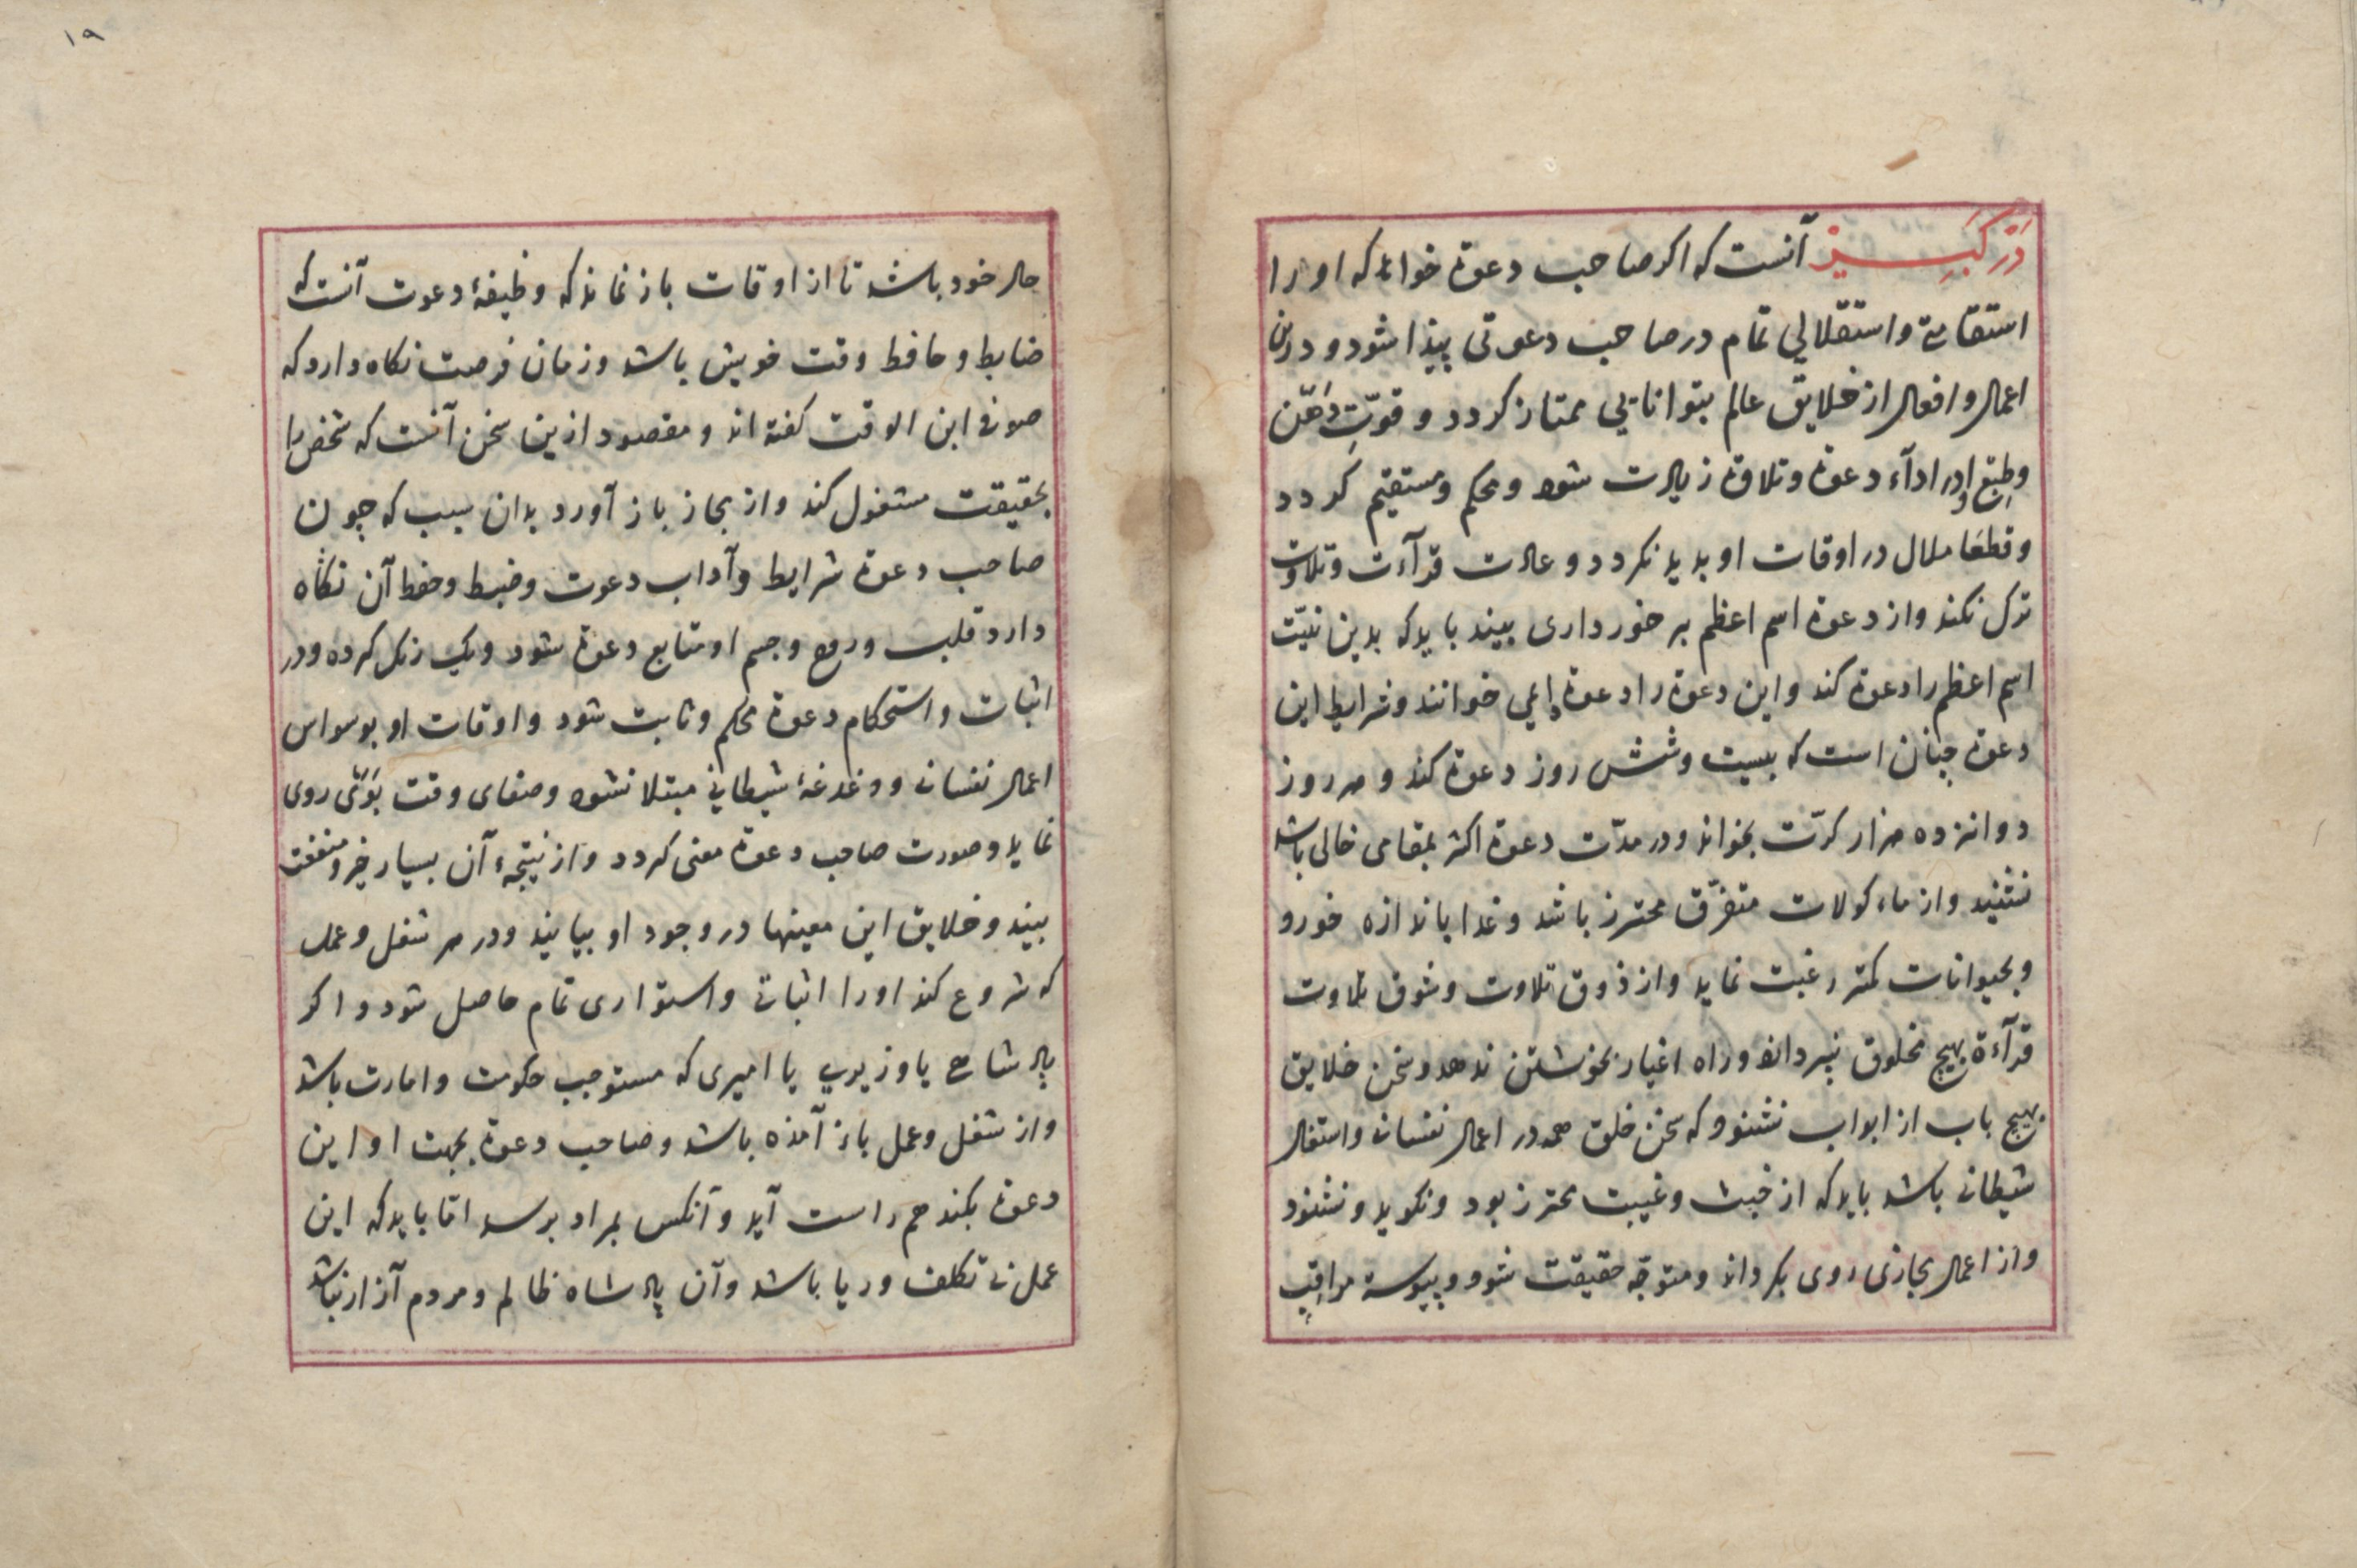 در کبیر آنست که اکر صاحب دعوة خواهد که او را
استقامة و استقلالی تمام در صاحب دعوتی پیدا شود و در
اعمال و افعال از خلایق عالم بتوانایی ممتاز کردد و قوّت ذهن
و طبع او در ادآء دعوة و تلاوة زیادت شود و محکم و مستقیم کردد
و قطعا ملال در اوقات او بدید نکردد و عادت قرآءت و تلاوت
ترک نکند و از دعوة اسم اعظم بر خورداری بیند باید که بدین نیّت
اسم اعظم را دعوة کند و این دعوة را دعوة خوانند و شرایط این
دعوة چنان است که بیست و شش روز دعوة کند و هر روز
دوانزده هزار کرّت بخواند و در مدّت دعوة اکثر بمقامی خالی باشد
نشیند و از ماءکولات متفرّق محترز باشد و غدا باندازه خورو
و بحیوانات کمتر رغبت نماید و از ذوق تلاوت و شوق تلاوت
قرآءة بهیچ مخلوق نپردازد و راه اغیار بخوشتن ندهد و سخن خلایق
بهیچ باب از ابواب نشنود که سخن خلق همه در اعمال نفسانی و اشتغال
شیطانی باشد باید که از خبث و غیبت محترز بود و نکوید و نشنود
و از اعمال مجازی روی بکرداند و متوجّه حقیقت شود و پیوسته مراقب
١٩
حال خود باشد تا از اوقات باز نماند که وظیفهٔ دعوت آنست که
ضابط و حافظ وقت خویش باشد و زمان فرصت نکاه دارد که
صوفی ابن الوقت کفته اند و مقصود ازین سخن آنست که شخص را
بحقیقت مشغول کند و از مجاز باز آورد بدان سبب که چون
صاحب دعوة شرایط و آداب دعوت و ضبط و حفظ آن نکاه
دارد قلب و روح و جسم او متابع دعوة شود و یک رنک کرده و در
اثبات و استحکام دعوة محکم و ثابت شود و اوقات او بوسواس
اعمال نفسانی و دغدغهٔ شیطانی مبتلا نشود و صفای وقت بوی روی
نماید و صورت صاحب دعوة معنی کردد و از نتیجهء آن بسیار خیر و منفعت
بیند و خلایق این معینها در وجود او بیابند و در هر شغل و عمل
که شروع کند او را اثباتی و استواری تمام حاصل شود و اکر
پادشاهی یا وزیری یا امیری که مستوجب حکومت و امارت باشد
و از شغل و عمل باز آمده باشد و صاحب دعوة بجهت او این
دعوة بکند هم راست آید و آنکس بمراد برسد امّا باید که این
عمل بی تکلف و ریا باشد و آن پادشاه ظالم و مردم آزار نباشد